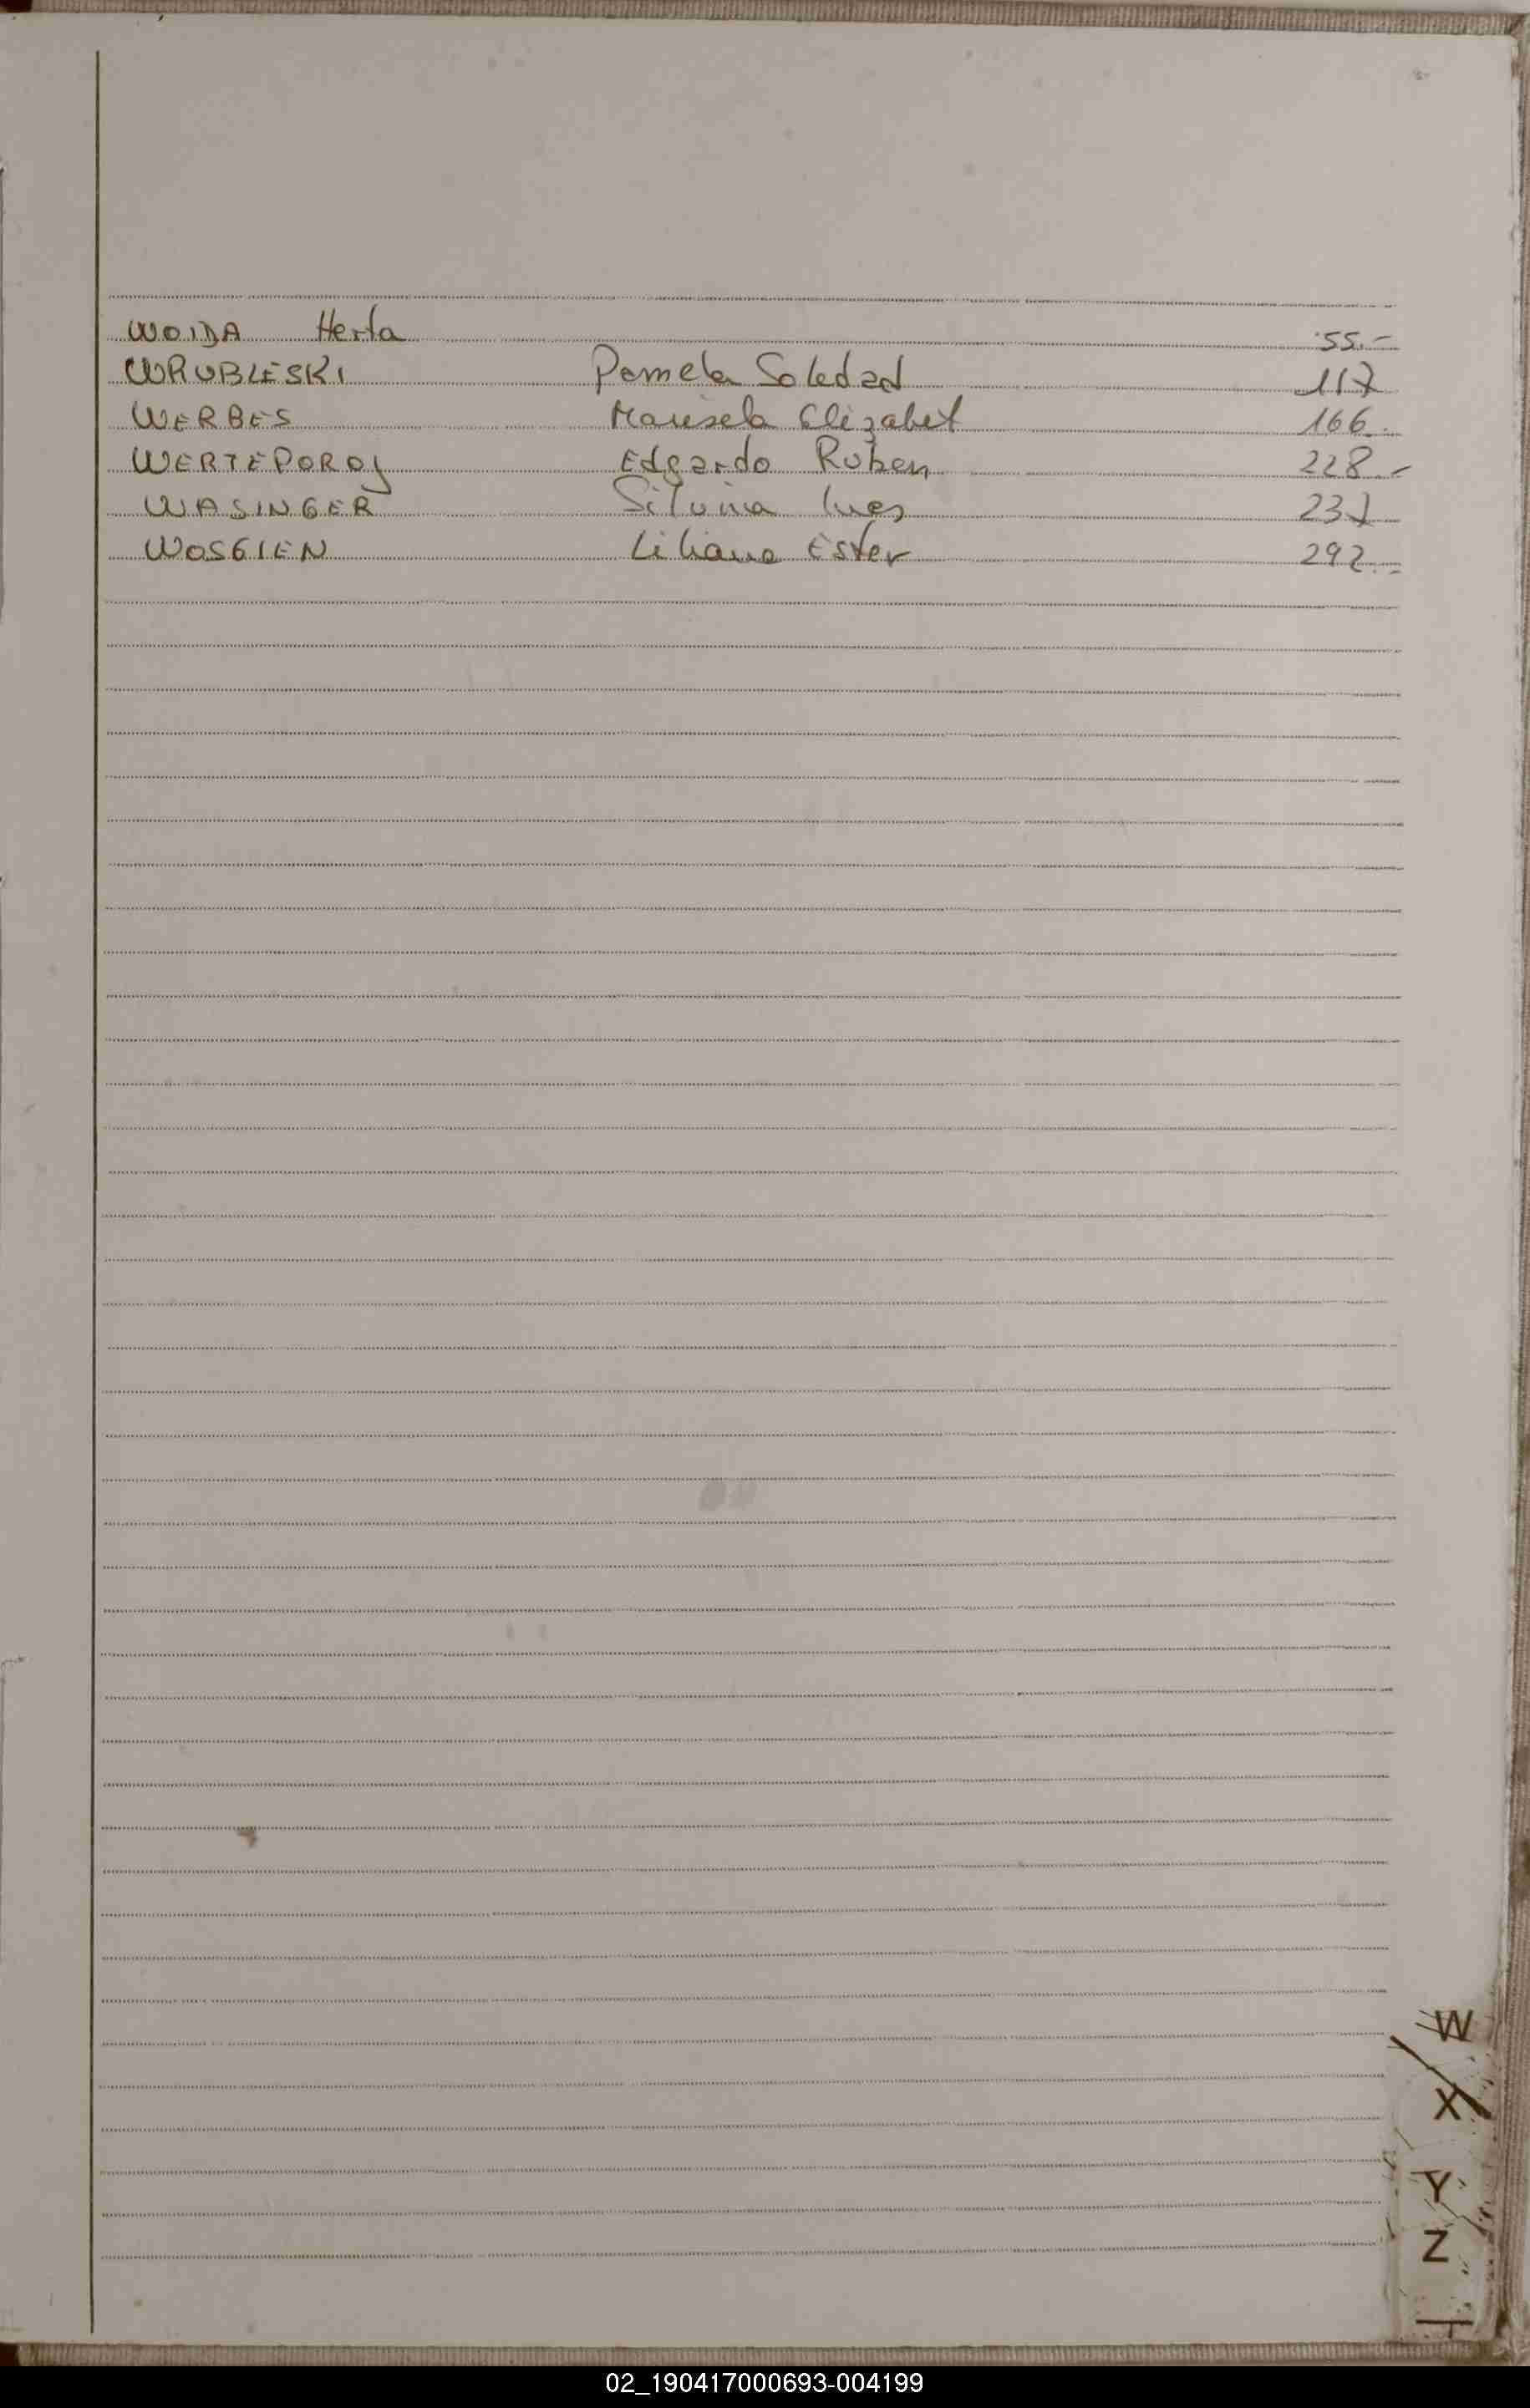 WOIDA Herta 55.-
WRUBLESKI Pamela Soledad 117
WERBES Marisela Elizabet 166.
WERTEPOROJ Edgardo Ruben 228.-
WASINGER Silvina Ines 237
WOSGIEN Liliana Ester 292.-
W
X
Y
Z
02_190417000693-004199